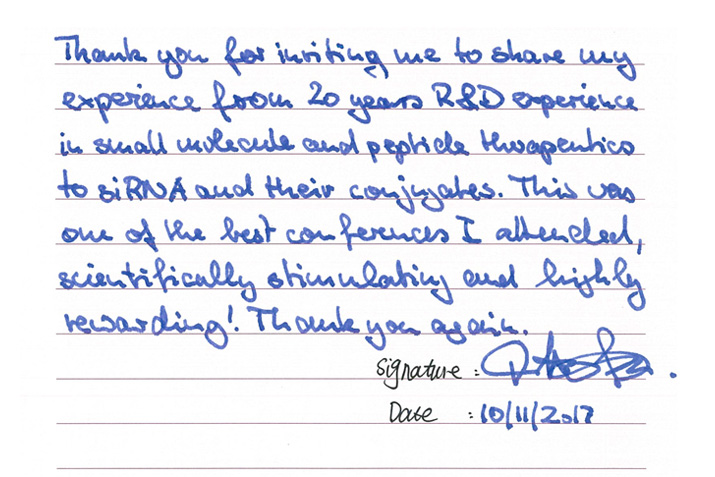 Thank you for inviting me to share my
experience from 20 years R&D experience
in small molecule and peptide therapeutics
to siRNA and their conjugates. This was
one of the best conferences I attended,
scientifically stimulating and highly
rewarding! Thank you again.
Signature :
Date : 10/11/2017